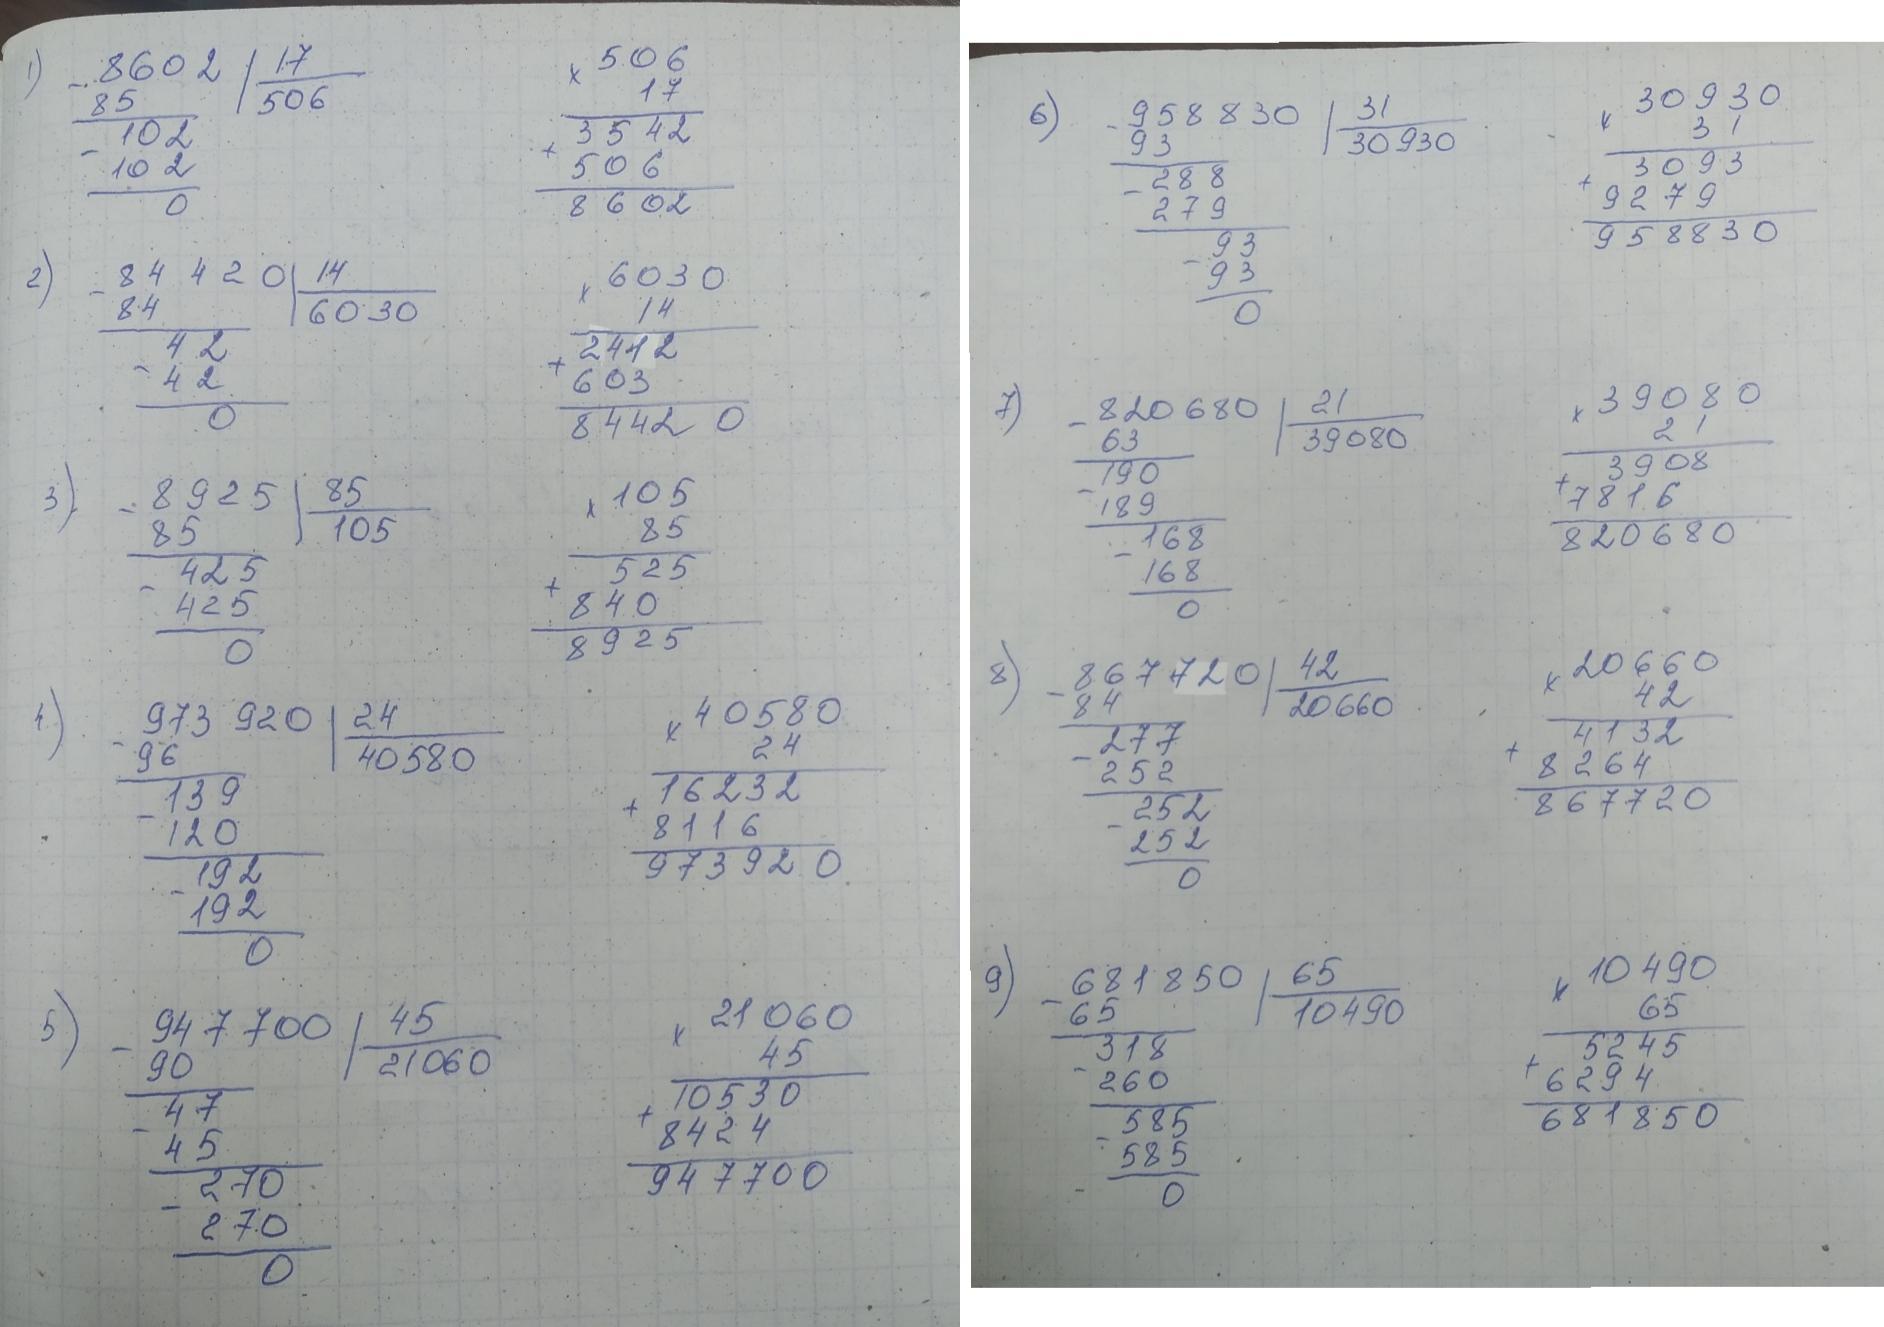 1) - 8602 | 17
85 | 506
- 102
102
0
x 506
17
+ 3542
506
8602
2) - 84420 | 14
84 | 6030
- 42
42
0
x 6030
14
+ 2412
603
84420
3) - 8925 | 85
85 | 105
- 425
425
0
x 105
85
+ 525
840
8925
4) - 973920 | 24
96 | 40580
- 139
120
- 192
192
0
x 40580
24
+ 16232
8116
973920
5) - 947700 | 45
90 | 21060
- 47
45
- 270
270
0
x 21060
45
+ 10530
8424
947700
6) - 958830 | 31
93 | 30930
- 288
279
- 93
93
0
x 30930
31
+ 3093
9279
958830
7) - 820680 | 21
63 | 39080
- 190
189
- 168
168
0
x 39080
21
+ 3908
7816
820680
8) - 867720 | 42
84 | 20660
- 277
252
- 252
252
0
x 20660
42
+ 4132
8264
867720
9) - 681850 | 65
65 | 10490
- 318
260
- 585
585
0
x 10490
65
+ 5245
6294
681850